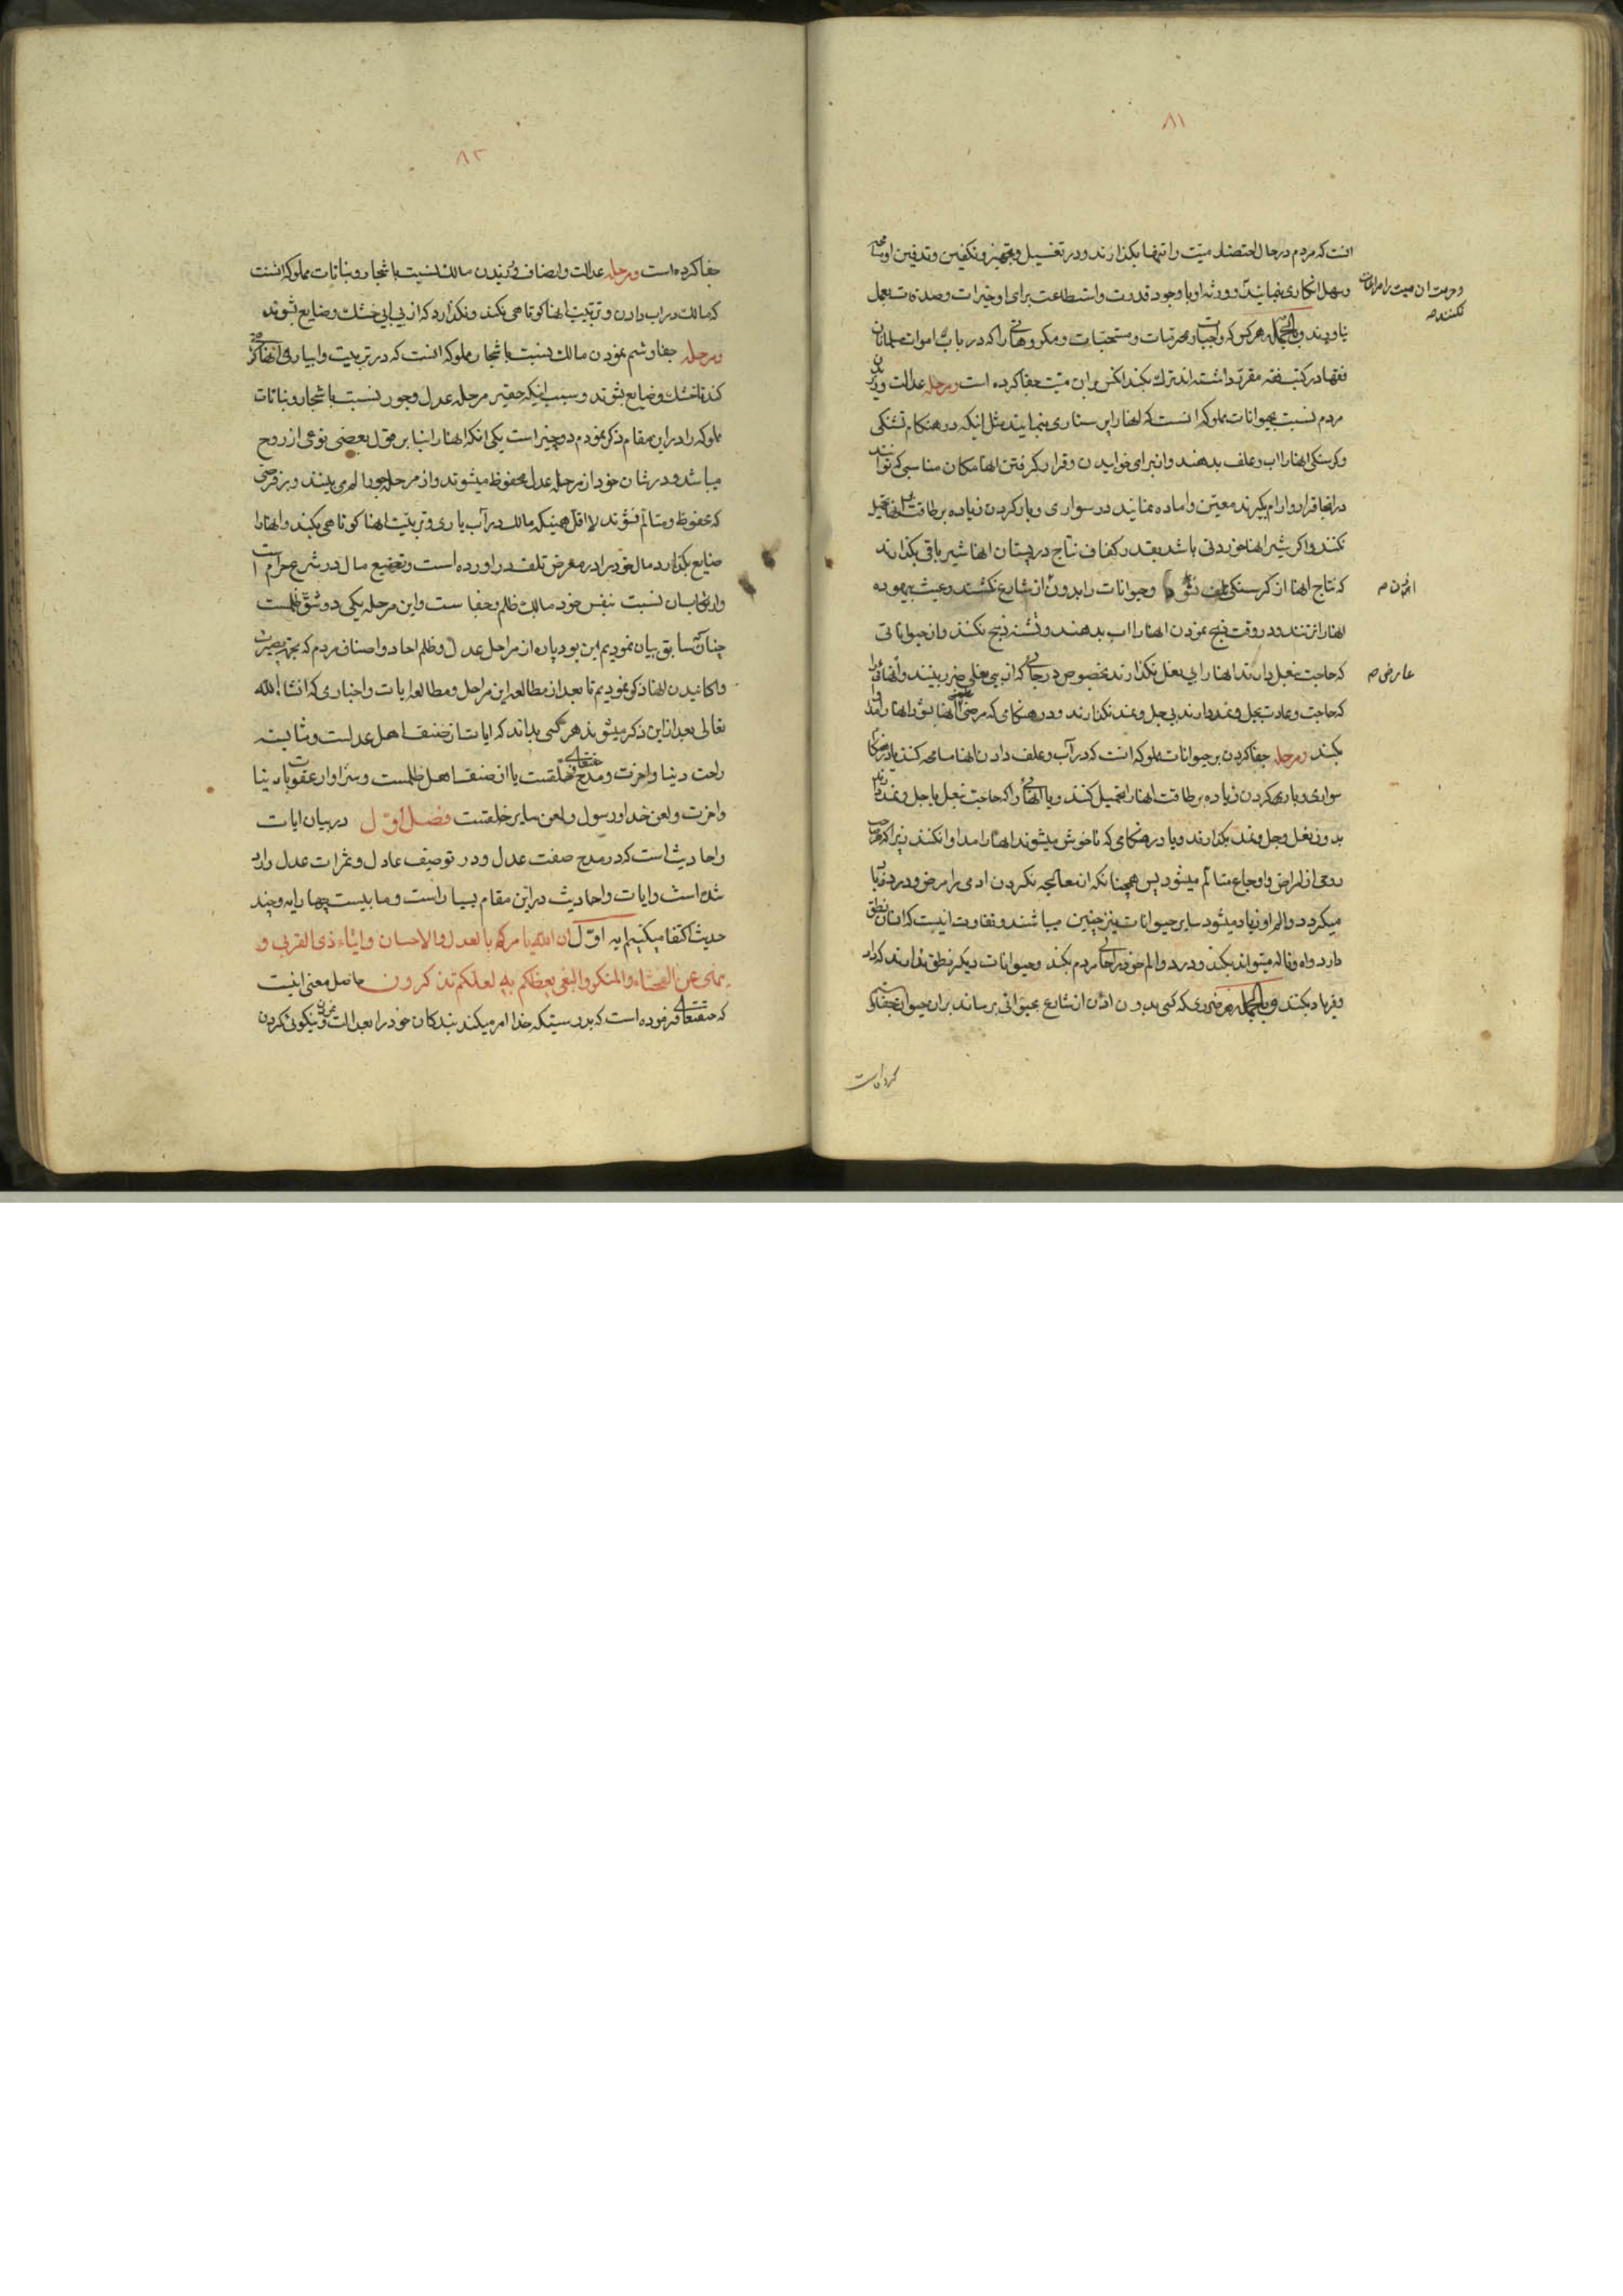 ۸۱
انست که مردم در حال احتضار میت را تنها بکذارند و در تغسیل و تجهیز و تکفین و تدفین او
و سهل انکاری بنمایند و ورثه او با وجود قدرت و استطاعت برای او خیرات و صدقات بعمل
و حرمت ان میت را مراعات نکنند صح
نیاورند و بالجمله هر کس که واجبات و مرتبات و مستحبات و مکروهاتی را که در باب اموات مسلمانان
فقها در کتب فقه مقرر داشته اند ترک بکند انکس بران میت جفا کرده است و مرحله عدالت ورزیدن
مردم نسبت بحیوانات مملوکه انست که انها را پرستاری بنمایند مثل اینکه در هنکام تشنکی
و کرسنکی انها را اب و علف بدهند و از برای خوابیدن و قرار کرفتن انها مکان مناسبی که توانند
در انجا قرار و ارام بکیرند معین و اماده نمایند در سواری و بار کردن زیاده بر طاقت بانها تحمیل
نکنند و اکر شیر انها خوردنی باشد بقدر کفاف نتاج در پستان انها شیر باقی بکذارند
که نتاج انها از کرسنکی تلف نشود و حیوانات را بدون اذن شارع نکشند و عبث بیهوده
انها را نزنند و در وقت ذبح نمودن انها را اب بدهند و تشنه ذبح نکنند و از حیواناتی
که حاجت بنعل دارند انها را بی نعل نکذارند بخصوص در جائی که از بی نعلی ضرر بینند و انهائی را
عارض صح
که حاجت و عادت بجل و نمد دارند بی جل و نمد نکذارند و در هنکامی که مرضی انها بشود انها را مداوا
بکنند و مرحله جفا کردن بر حیوانات مملوکه انست که در آب و علف دادن انها مسامحه کنند یا در هنکام
سواری و باری کردن زیاده بر طاقت انها را تحمیل کنند و یا انهائی را که حاجت بنعل یا جل و نمد دارند
بدون نعل و جل و نمد بکذارند و یا در هنکامی که ناخوش میشوند انها را مداوا نکنند زیرا که هر صاحب
روحی از امراض و اوجاع متالم میشود پس همچنانکه از معالجه نکردن ادمی را مرض و درد زیاد
میکردد و الم او زیاد میشود سایر حیوانات نیز چنین میباشند و تفاوت اینست که انسان نطق
دارد و اه و ناله میتواند بکند و درد و الم خود را حالی مردم بکند و حیوانات دیکر نطق ندارند که داد
و فریاد بکنند و بالجمله هر ضرری که کسی بدون اذن از شارع بحیوانی برساند بران حیوان جفا
کرده است
۸۲
جفا کرده است و مرحله عدالت و انصاف ورزیدن مالک نسبت باشجار و نباتات مملوکه انست
که مالک در اب دادن و تربیت انها کوتاهی نکند و نکذارد که از بی ابی خشک و ضایع شوند
و مرحله جفا و ستم نمودن مالک نسبت باشجار مملوکه انست که در تربیت و ابیاری انها
کند تا خشک و ضایع شوند و سبب اینکه حقیر مرحله عدل و جور نسبت باشجار و نباتات
مملوکه را در این مقام ذکر نمودم دو چیز است یکی انکه انها را بنا بر قول بعضی نوعی از روح
میباشد و در شان خود از مرحله عدل محفوظ میشوند و از مرحله جور الم می بینند و بر فرضی
که محفوظ و متالم نشوند لا اقل همینکه مالک در آب یاری و تربیت انها کوتاهی بکند و انها را
ضایع بکذارد مال خود را در معرض تلف در اورده است و تضییع مال در شرع حرام است
چنانکه سابق بیان نمودیم این بود پاره از مراحل عدل و ظلم احاد و اصناف مردم که بجهة بصیرت
و اکاهانیدن انها ذکر نمودیم تا بعد از مطالعه این مراحل و مطالعه ایات و اخباری که انشاء الله
تعالی بعد از این ذکر میشوند هر کسی بداند که ایا از صنف اهل عدلست و شایسته
راحت دنیا و اخرت و مدح حقتعالی و خلقست یا از صنف اهل ظلمست و سزاوار عقوبات دنیا
و اخرت و لعن خدا و رسول و لعن سایر خلقست فصل اول در بیان ایات
و احادیث است که در مدح صفت عدل و در توصیف عادل و ثمرات عدل وارد
شده است و ایات و احادیث در این مقام بسیار است و ما به بیست چهار ایه و چند
حدیث اکتفا میکنیم ایه اول ان الله یامرکم بالعدل و الاحسان و ایتاء ذی القربی و
ینهی عن الفحشاء و المنکر و البغی یعظکم به لعلکم تذکرون حاصل معنی اینست
که حقتعالی فرموده است که بدرستیکه خدا امر میکند بندکان خود را بعدالت و نیکوئی کردن